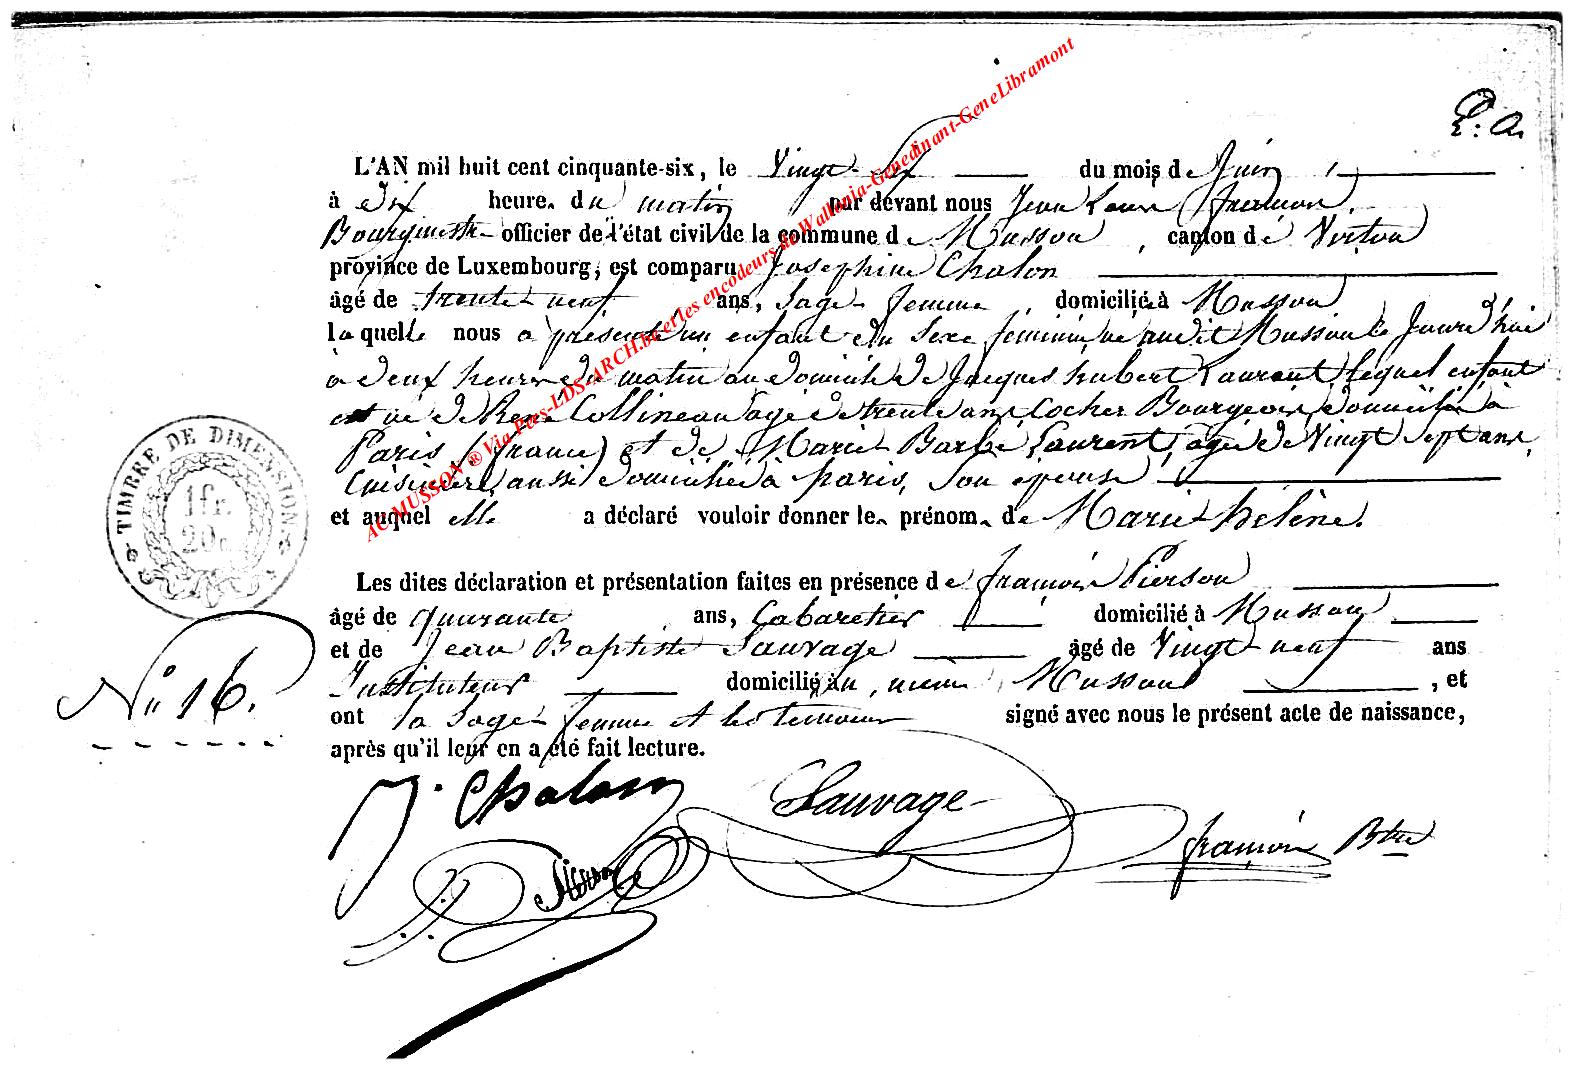 P. A.
L'AN mil huit cent cinquante-six, le Vingt Six du mois de Juin
à dix heure. du matin par devant nous Jean Louis François,
Bourgmestre officier de l'état civil de la commune de Musson, canton de Virton
province de Luxembourg, est comparu Josephine Chalon
âgé de trente neuf ans, Sage femme, domicilié à Musson
laquelle nous a présenté un enfant du Sexe féminin, né audit Musson le Jourd'hui
à deux heures du matin au domicile de Jacques hubert Laurent lequel enfant
est né de René Collineau âgé de trente ans Cocher Bourgeois, domicilié à
Paris, (france) et de Marie Barbe Laurent, agée de Vingt Sept ans,
Cuisinière, aussi domiciliée à paris, son épouse
et auquel elle a déclaré vouloir donner le prénom de Marie hélène.
Les dites déclaration et présentation faites en présence de françois Pierson
âgé de quarante ans, Cabaretier domicilié à Musson
et de Jean Baptiste Sauvage âgé de Vingt neuf ans
Instituteur domicilié au même Musson, et
ont la Sage femme et les temoins signé avec nous le présent acte de naissance,
après qu'il leur en a été fait lecture.
TIMBRE DE DIMENSION
1 fr.
20 c.
N° 16.
J. Chalon
Sauvage
Pierson
françois Btre
AC MUSSON ® Via Pers-LDS-ARCH.be et les encodeurs de Wallonia-Genedinant-GeneLibramont